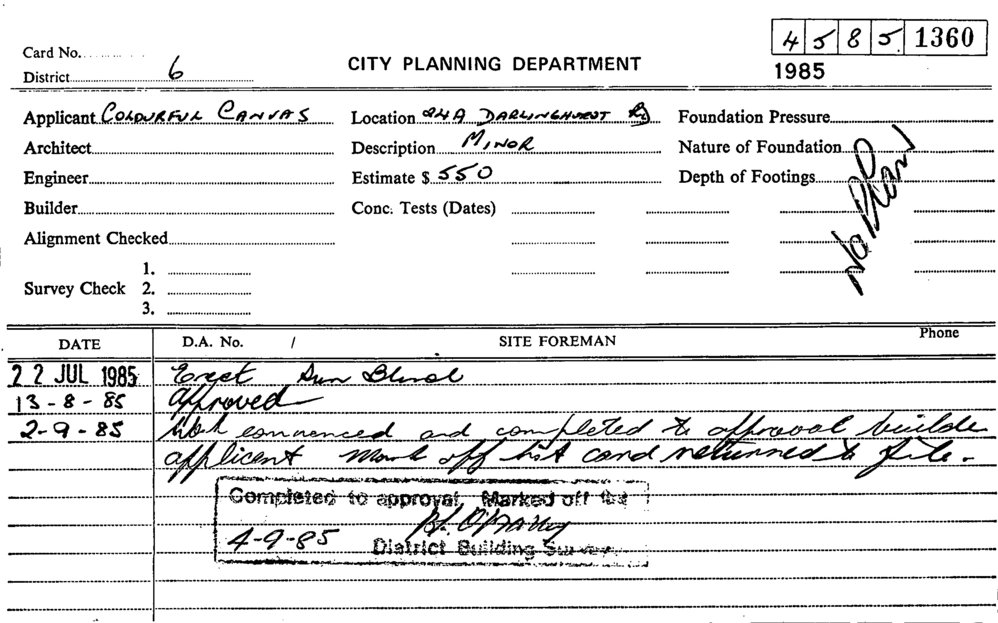 4 5 8 5 1360
Card No.
CITY PLANNING DEPARTMENT
1985
District 6
Applicant COLOURFUL CANVAS Location 24A DARLINGHURST Rd Foundation Pressure
Architect Description MINOR Nature of Foundation
Engineer Estimate $ 550 Depth of Footings
Builder Conc. Tests (Dates)
No Plans
Alignment Checked
1.
Survey Check 2.
3.
DATE D.A. No. / SITE FOREMAN Phone
22 JUL 1985 Erect Sun Blind
13-8-85 approved
2-9-85 Work commenced and completed to approval builder
applicent Mark off list card returned to file.
Completed to approval. Marked off list
4-9-85
District Building Surveyor